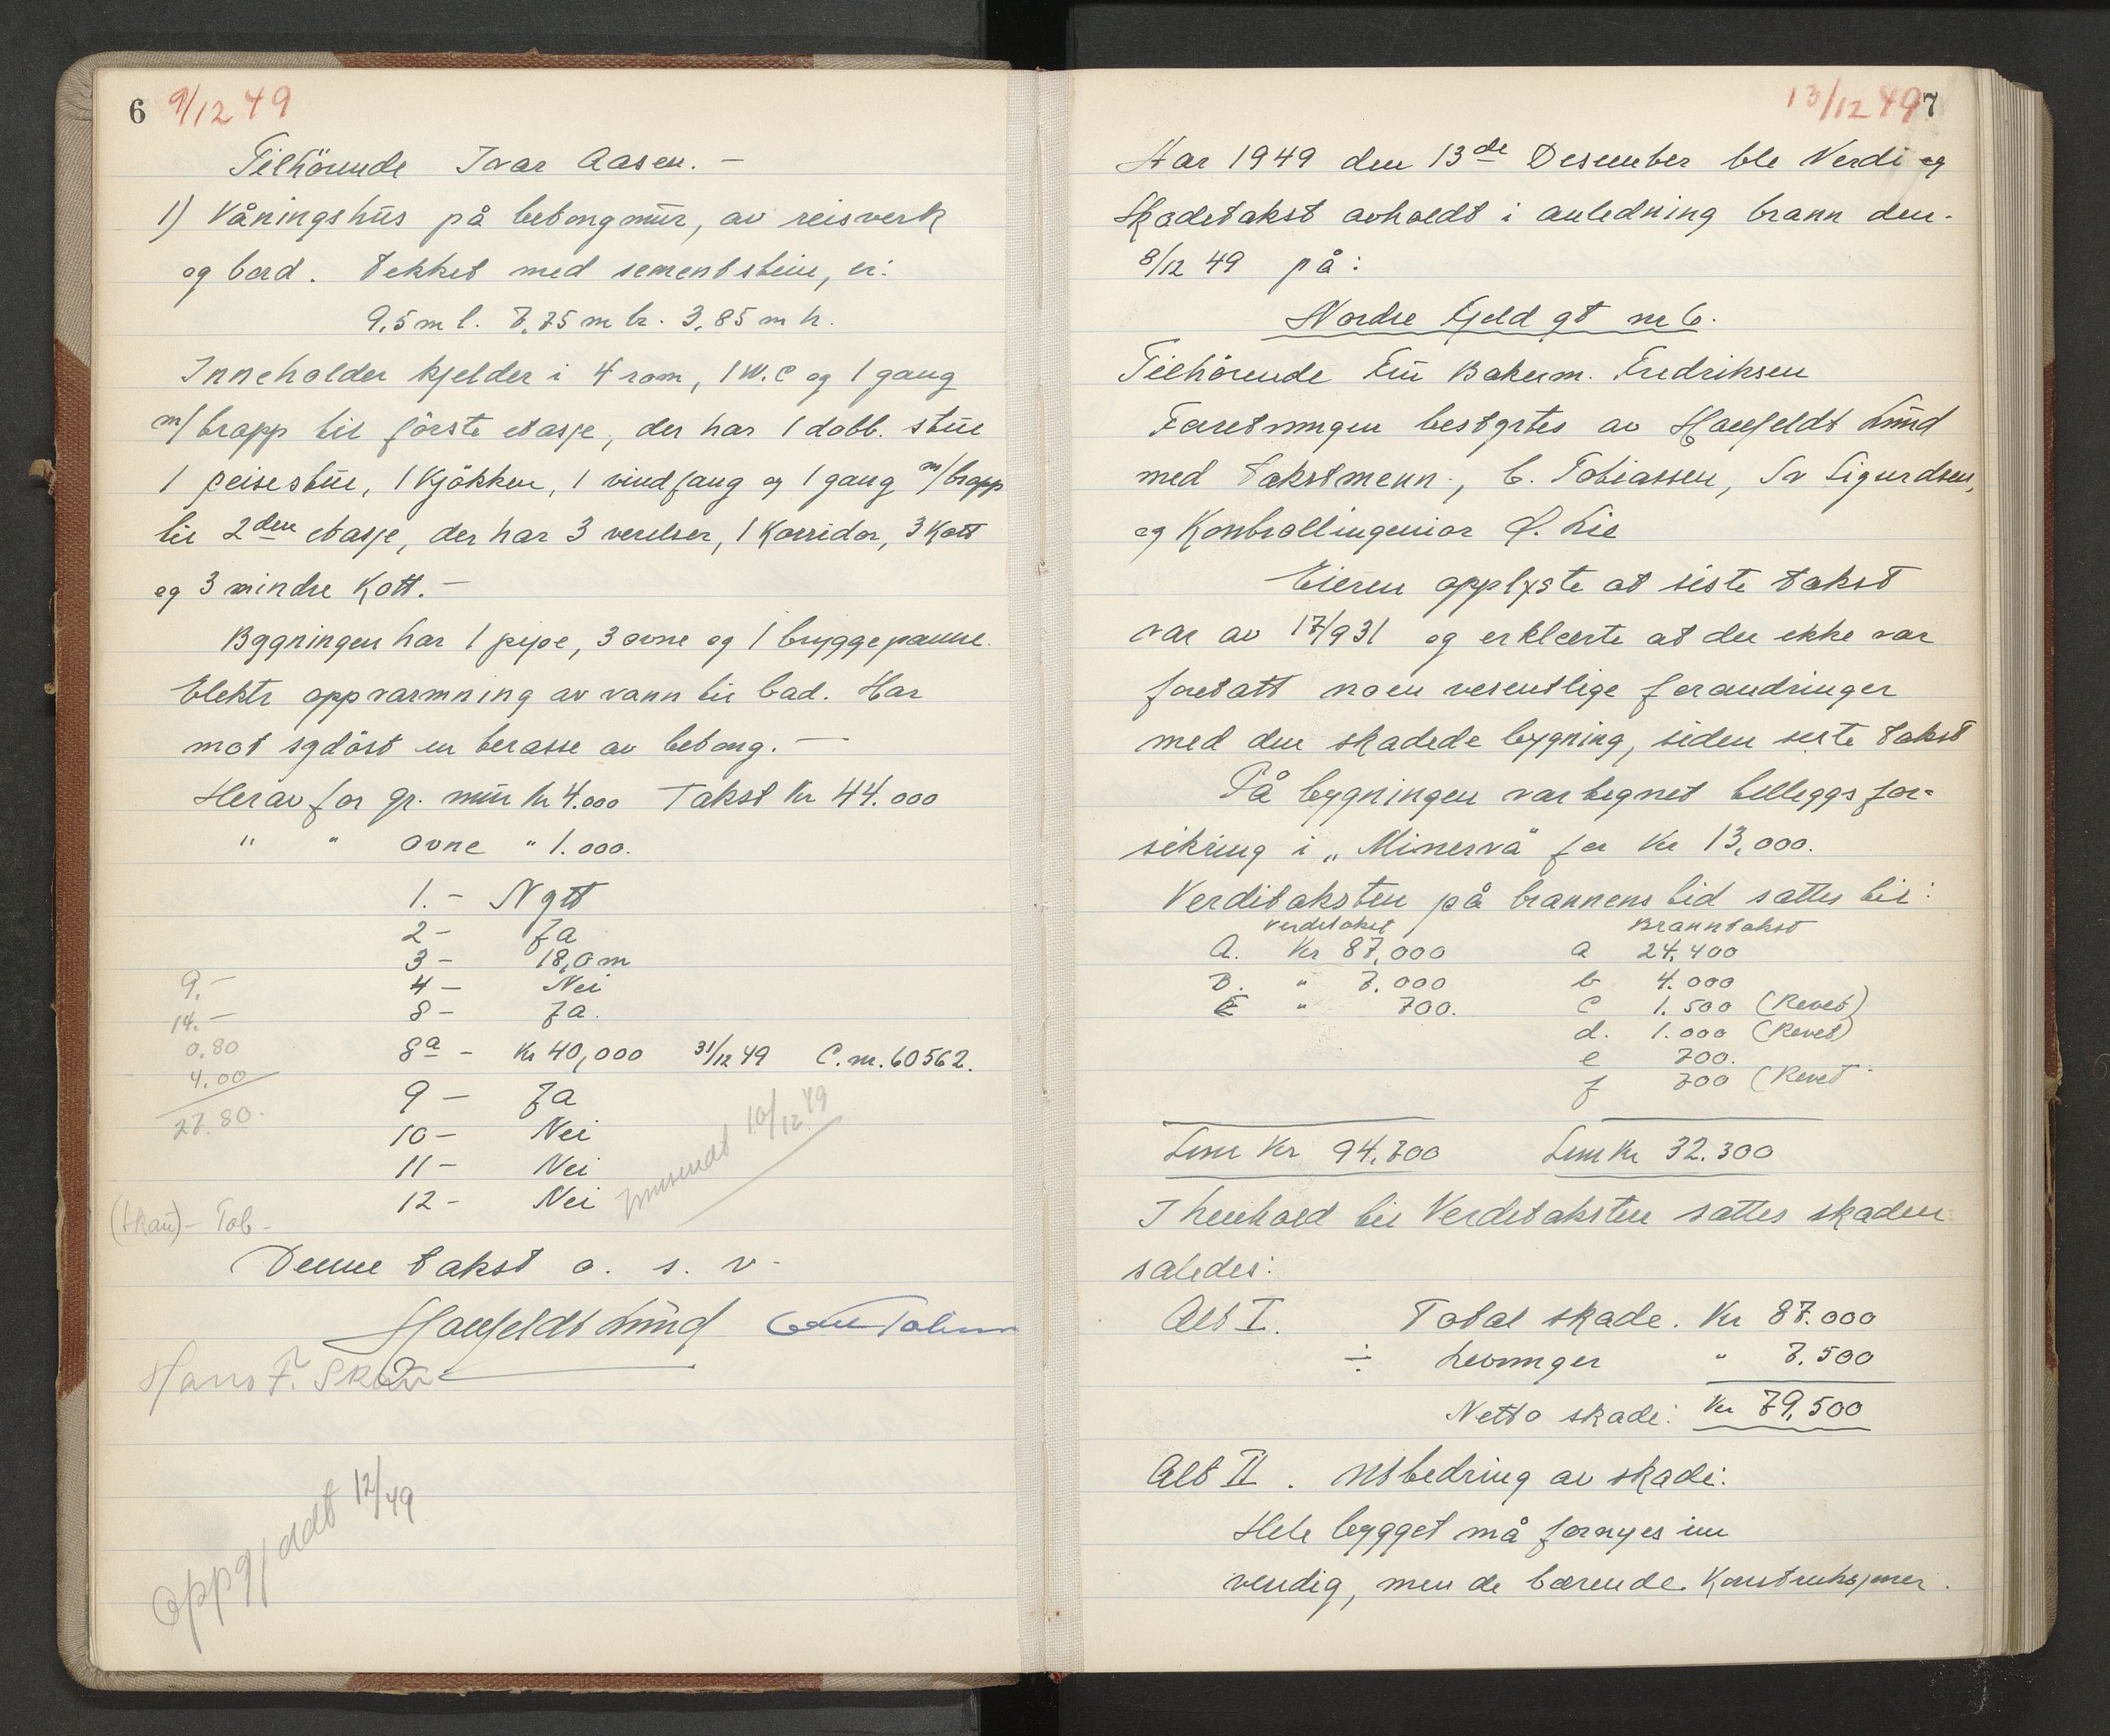 6 9/12 49
Tilhörende Ivar Aasen. –
1) Våningshus på betongmur, av reisverk
og bord. Tekket med sementstein, er:
9,5 m l. 7,75 m br. 3,85 m h.
Inneholder kjelder i 4 rom, 1 W.C og 1 gang
m/trapp til förste etasje, der har 1 dobb. stue
1 peisestue, 1 Kjökken, 1 vindfang og 1 gang m/trapp
til 2den etasje, der har 3 verelser, 1 Korridor, 3 Kott
og 3 mindre Kott. –
Bygningen har 1 pipe, 3 ovne og 1 bryggepanne.
Elektr oppvarmning av vann til bad. Har
mot sydöst en terasse av betong. –
Herav for gr. mur Kr 4.000 Takst Kr 44.000
" " ovne " 1.000.
1. – Nytt
2 – Ja
3 – 18,0 m
4 – Nei
8 – Ja.
8a – Kr 40,000 31/12 49 C.nr. 60562.
9 – Ja
10 – Nei
11 – Nei
12 – Nei
9.–
14.–
0.80
4.00
27.80.
10/12 49
(Skau) – Tob –
Denne takst o. s. v.
Haufeldt Lund
Hans F. Skau
oppgj ddt 12/49
13/12 49 7
Aar 1949 den 13de Desember ble Verdi og
Skadetakst avholdt i anledning brann den
8/12 49 på:
Nordre Fjeld gt nr 6.
Tilhörende Fru Bakerm. Fredriksen
Forretningen bestyrtes av Haufeldt Lund
med takstmenn, C. Tobiassen, Sv Sigurdsen,
og Kontrollingeniör Ø. Lie
Eieren opplyste at siste takst
var av 17/9 31 og erklærte at der ikke var
foretatt noen vesentlige forandringer
med den skadede bygning, siden siste takst
På bygningen var tegnet tilleggsfor=
sikring i „Minerva" for Kr 13,000.
Verditaksten på brannens tid sattes til:
Verditakst Branntakst
A. Kr 87,000 a 24.400
B. " 7.000 b 4.000
C " 700. c 1.500 (Revet)
d. 1.000 (Revet)
e 700.
f 700 (Revet
Sum Kr 94.700 Sum Kr 32.300
I henhold til Verditaksten sattes skaden
saledes:
Alt I. Total skade. Kr 87.000
÷ Levninger " 7.500
Netto skade: Kr 79,500
Alt II. Utbedring av skade:
Hele bygget må fornyes inn
vendig, men de bærende Konstruksjoner.